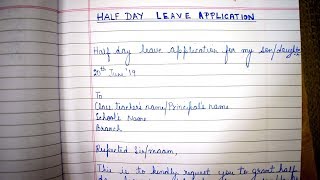 HALF DAY LEAVE APPLICATION
Half day leave application for my son/daughter
20th June '19
To
Class teacher's name/Principal's name
School's Name
Branch
Respected Sir/maam,
This is to kindly request you to grant half